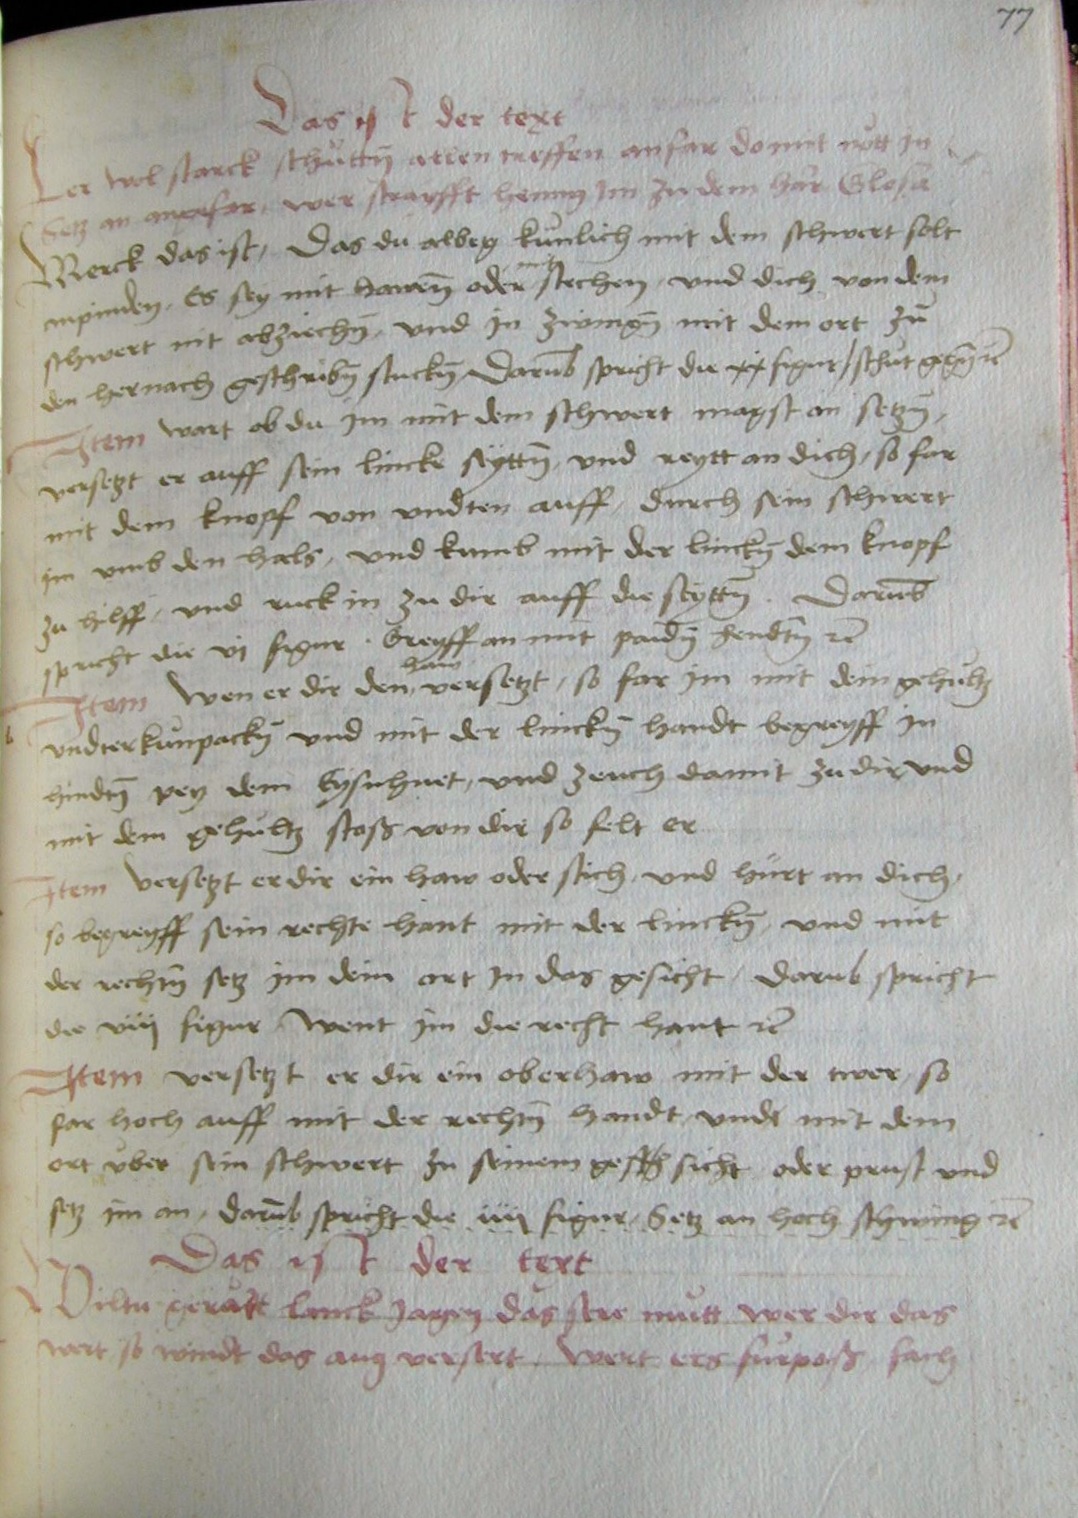 77
Das ist der text
Ler wol starck schütten allen treffen anfar domit nött in
Setz an angefar, wer strayfft heng im zu dem har Glosa
Merck das ist, Das du albeg künlich mit dem schwert solt
anpinden, Es sey mit hawen̄ oder mit stechen, und dich von dem
schwert nit abziechn̄, und in zwingn̄ mit dem ort zü
den hernach geschribn̄ stuckn̄ Darūb spricht die xx figur / schüt gegn̄ rc̄
Item wart ob du im mit dem schwert magst an setzn̄,
versetzt er auff sein lincke seyttn̄, und reytt an dich, so far
mit dem knopf von undten auff, durch sein schwert
im umb den hals, und kumb mit der linckn̄ dem knopf
zu hilff, und ruck in zu dir auff die seyttn̄. Darūb
spricht die vi figur. Greyff an mit paidn̄ hendtn̄ rc̄
Item Wen er dir den haw versetzt, so far im mit dein gehultz
undter künpackn̄ und mit der linckn̄ handt begreyff in
hindn̄ pey dem Eysnhuet, und zeuch damit zu dir und
mit dem gehültz stoß von dir so felt er
Item Versetzt er dir ein haw oder stich, und hürt an dich,
so begreyff sein rechte hant mit der linckn̄, und mit
der rechtn̄ setz im dein ort in das gesicht, Darub spricht
die viij figur, Went im die recht hant rc̄
Item versetzt er dir ein oberhaw mit der twer, so
far hoch auff mit der rechtn̄ handt, undt mit dem
ort über sein schwert zu seinem gesicht oder prust und
setz im an, darūb spricht die iiij figur, Setz an hoch schwing rc̄
Das ist der text
Wiltu gerütt linck Jagen das sere mutt wer dir das
wert so windt das aug versert. Wert ers fürpaß, fach